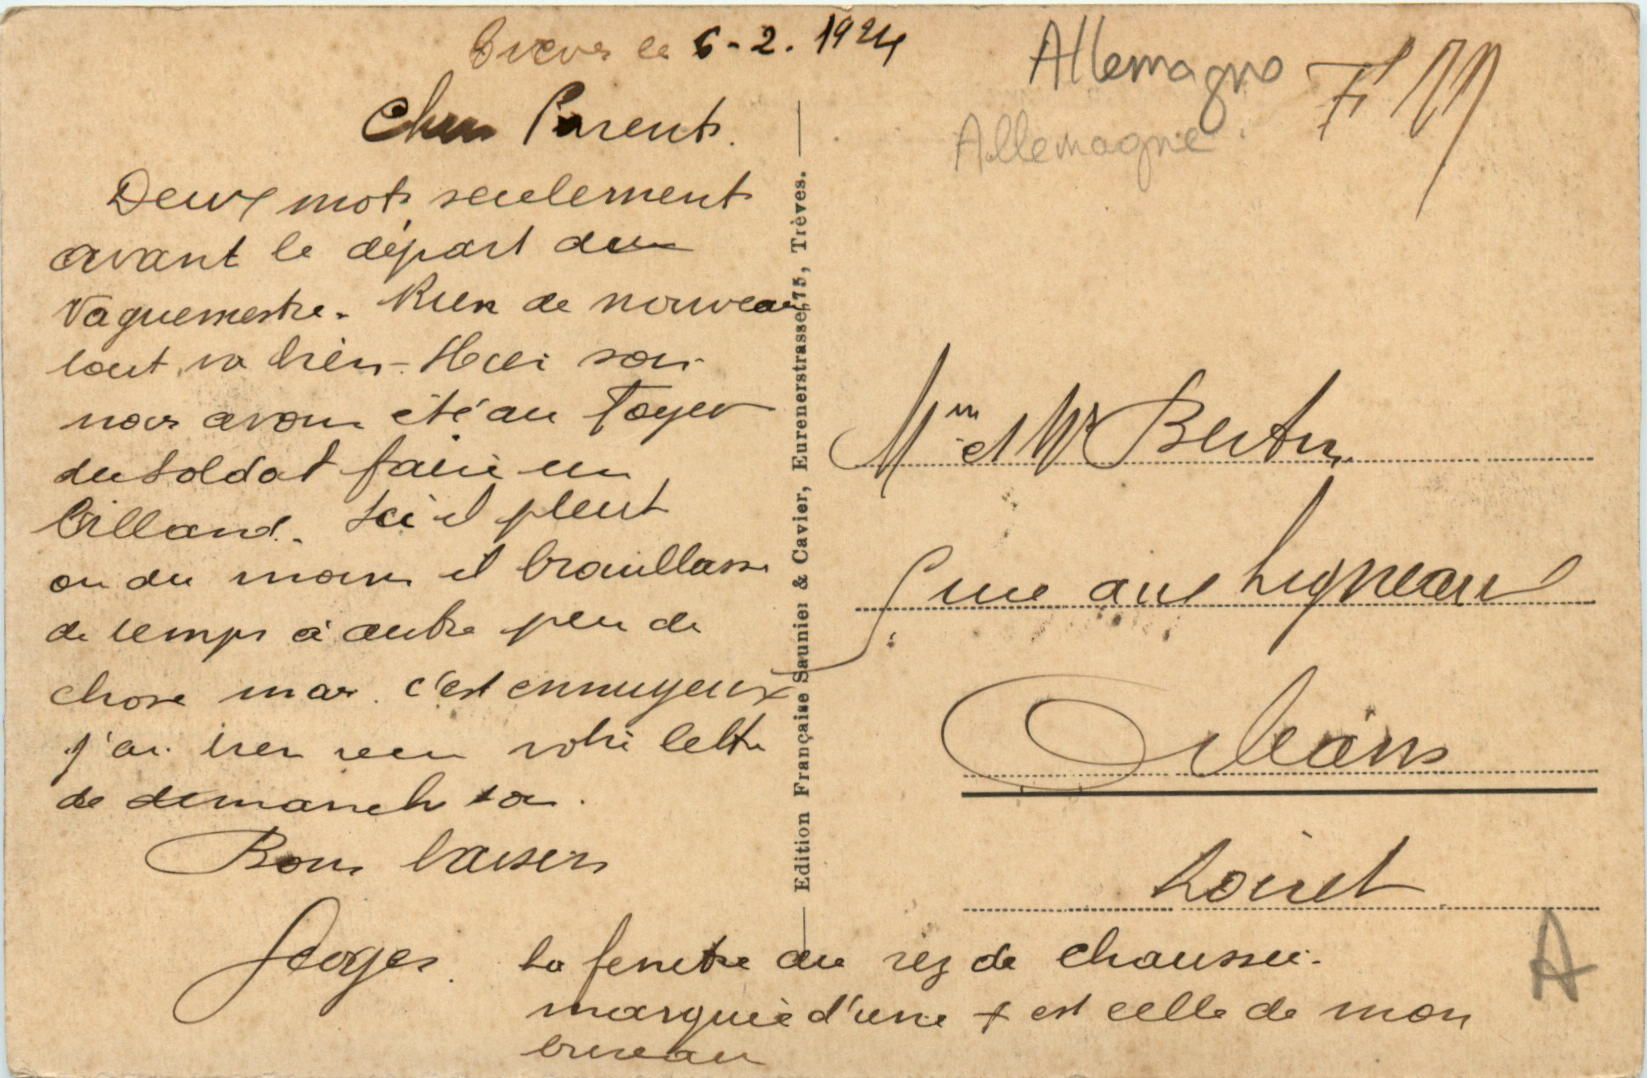 Trèves le 6-2.1924
Chers Parents.
Deux mots seulement
avant le départ du
Vaguemestre. Rien de nouveau
tout va bien - Hier soir
nous avons été au Foyer
du Soldat faire un
Billard. Ici il pleut
ou du moins il brouillasse
de temps à autre peu de
chose mais c'est ennuyeux
j'ai bien reçu votre lettre
de dimanche
Bons baisers
Georges.
la fenetre au rez de chaussée.
marquée d'une + est celle de mon
bureau
Edition Française Saunier & Cavier, Eurenerstrasse, 75, Trèves.
Allemagne
Allemagne
Mme et Mr
rue aux Ligneaux
Orléans
Loiret
A